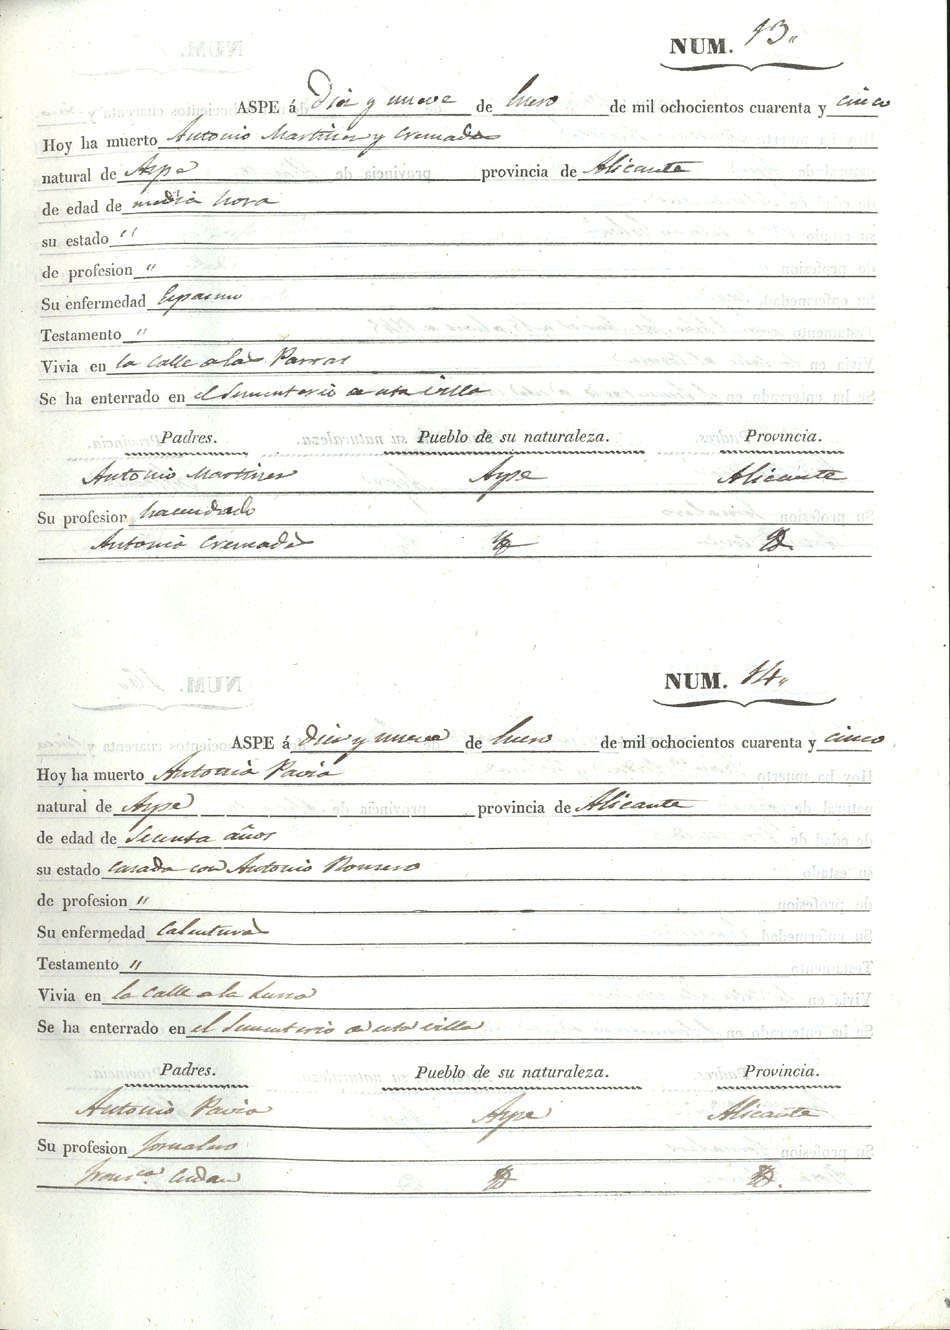 NUM. 13.
ASPE á Diez y nueve de Enero de mil ochocientos cuarenta y cinco
Hoy ha muerto Antonio Martinez y Cremades
natural de Aspe provincia de Alicante
de edad de media hora
su estado "
de profesion "
Su enfermedad Espasmo
Testamento "
Vivia en la Calle de las Parras
Se ha enterrado en el Sementerio de esta villa
Padres. Pueblo de su naturaleza. Provincia.
Antonio Martinez Aspe Alicante
Su profesion hacendado
Antonia Cremades
NUM. 14.
ASPE á Diez y nueve de Enero de mil ochocientos cuarenta y cinco
Hoy ha muerto Antonia Pavia
natural de Aspe provincia de Alicante
de edad de años
su estado casada con Antonio Romero
de profesion "
Su enfermedad Calenturas
Testamento "
Vivia en la Calle de la
Se ha enterrado en el Sementerio de esta villa
Padres. Pueblo de su naturaleza. Provincia.
Antonio Pavia Aspe Alicante
Su profesion Jornalero
Franca.